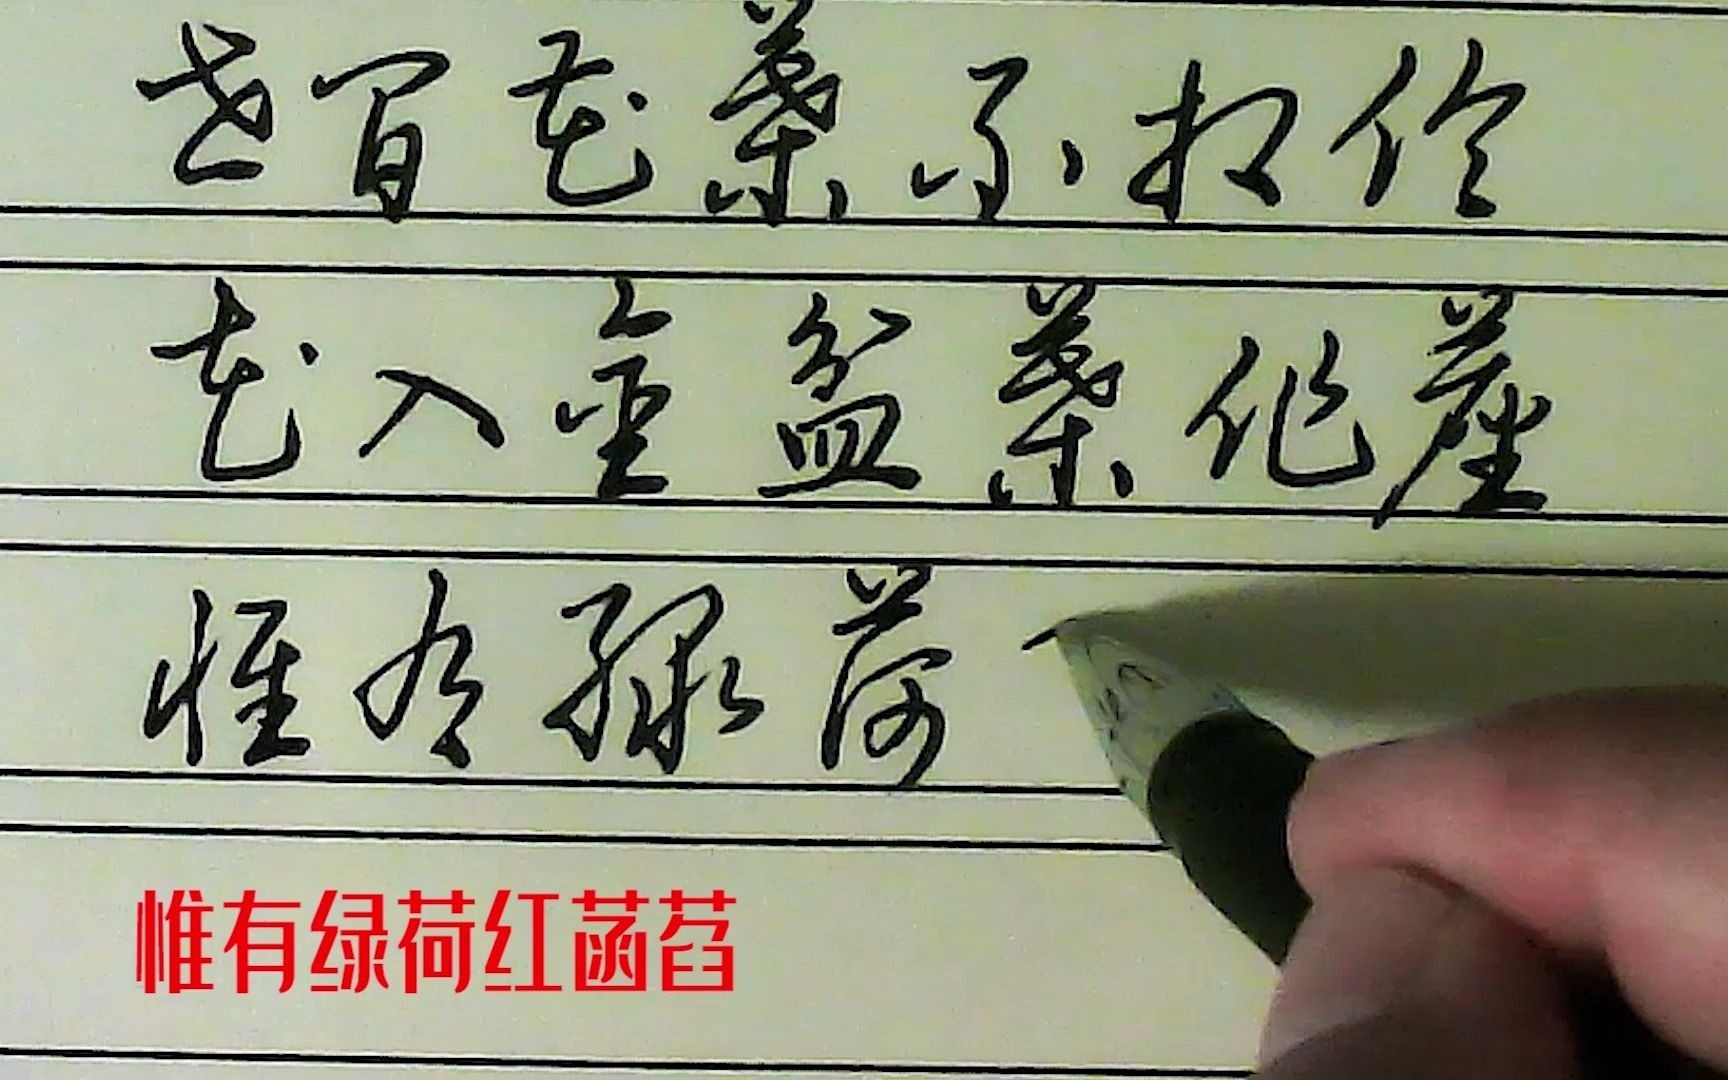 世间花叶不相伦
花入金盆叶作尘
惟有绿荷
惟有绿荷红菡萏